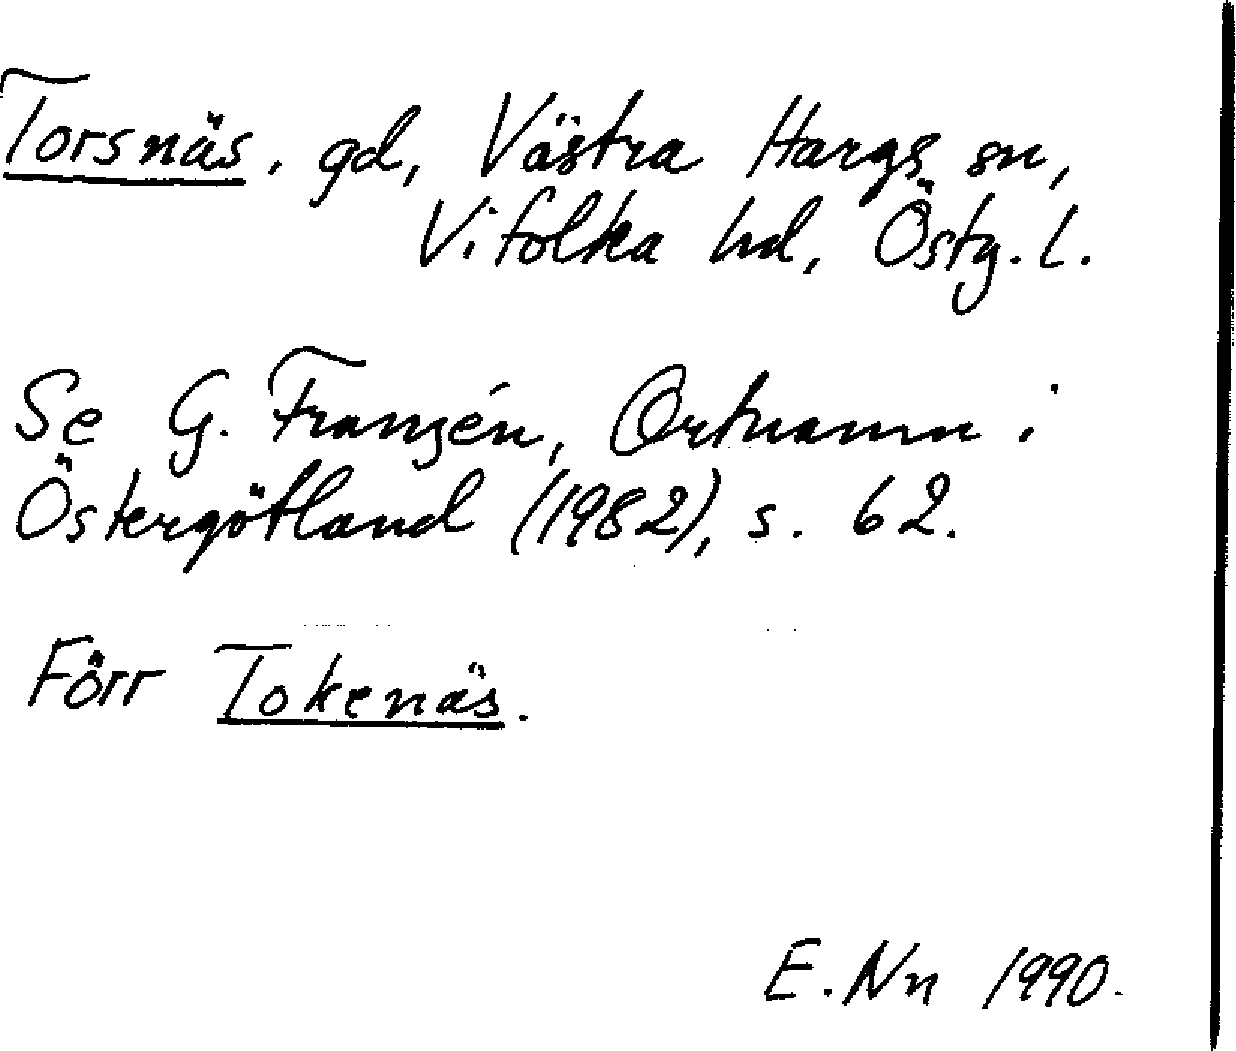 Torsnäs, gd, Västra Hargs sn,
Vifolka hd, Östg. l.
Se G. Franzén, Ortnamn i
Östergötland (1982), s. 62.
Förr Tokenäs.
E. Nn 1990.